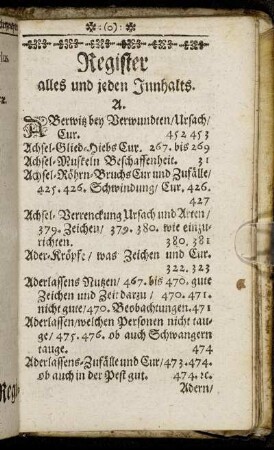 (o)
Register
alles und jeden Innhalts.
A.
ABerwitz bey Verwundten / Ursach /
Cur. 452 453
Achsel-Glied-Hiebs Cur. 267. bis 269
Achsel-Muskeln Beschaffenheit. 31
Achsel-Röhrn-Bruchs Cur und Zufälle /
425. 426. Schwindung / Cur. 426.
427
Achsel-Verrenckung Ursach und Arten /
379. Zeichen / 379. 380. wie einzu-
richten. 380, 381
Ader-Kröpfe / was Zeichen und Cur.
322. 323
Aderlassens Nutzen / 467. bis 470. gute
Zeichen und Zeit darzu / 470. 471.
nicht gute / 470. Beobachtungen. 471
Aderlassen / welchen Personen nicht tau-
ge / 475. 476. ob auch Schwangern
tauge. 474
Aderlassens-Zufälle und Cur / 473. 474.
ob auch in der Pest gut. 474. ec.
Adern /